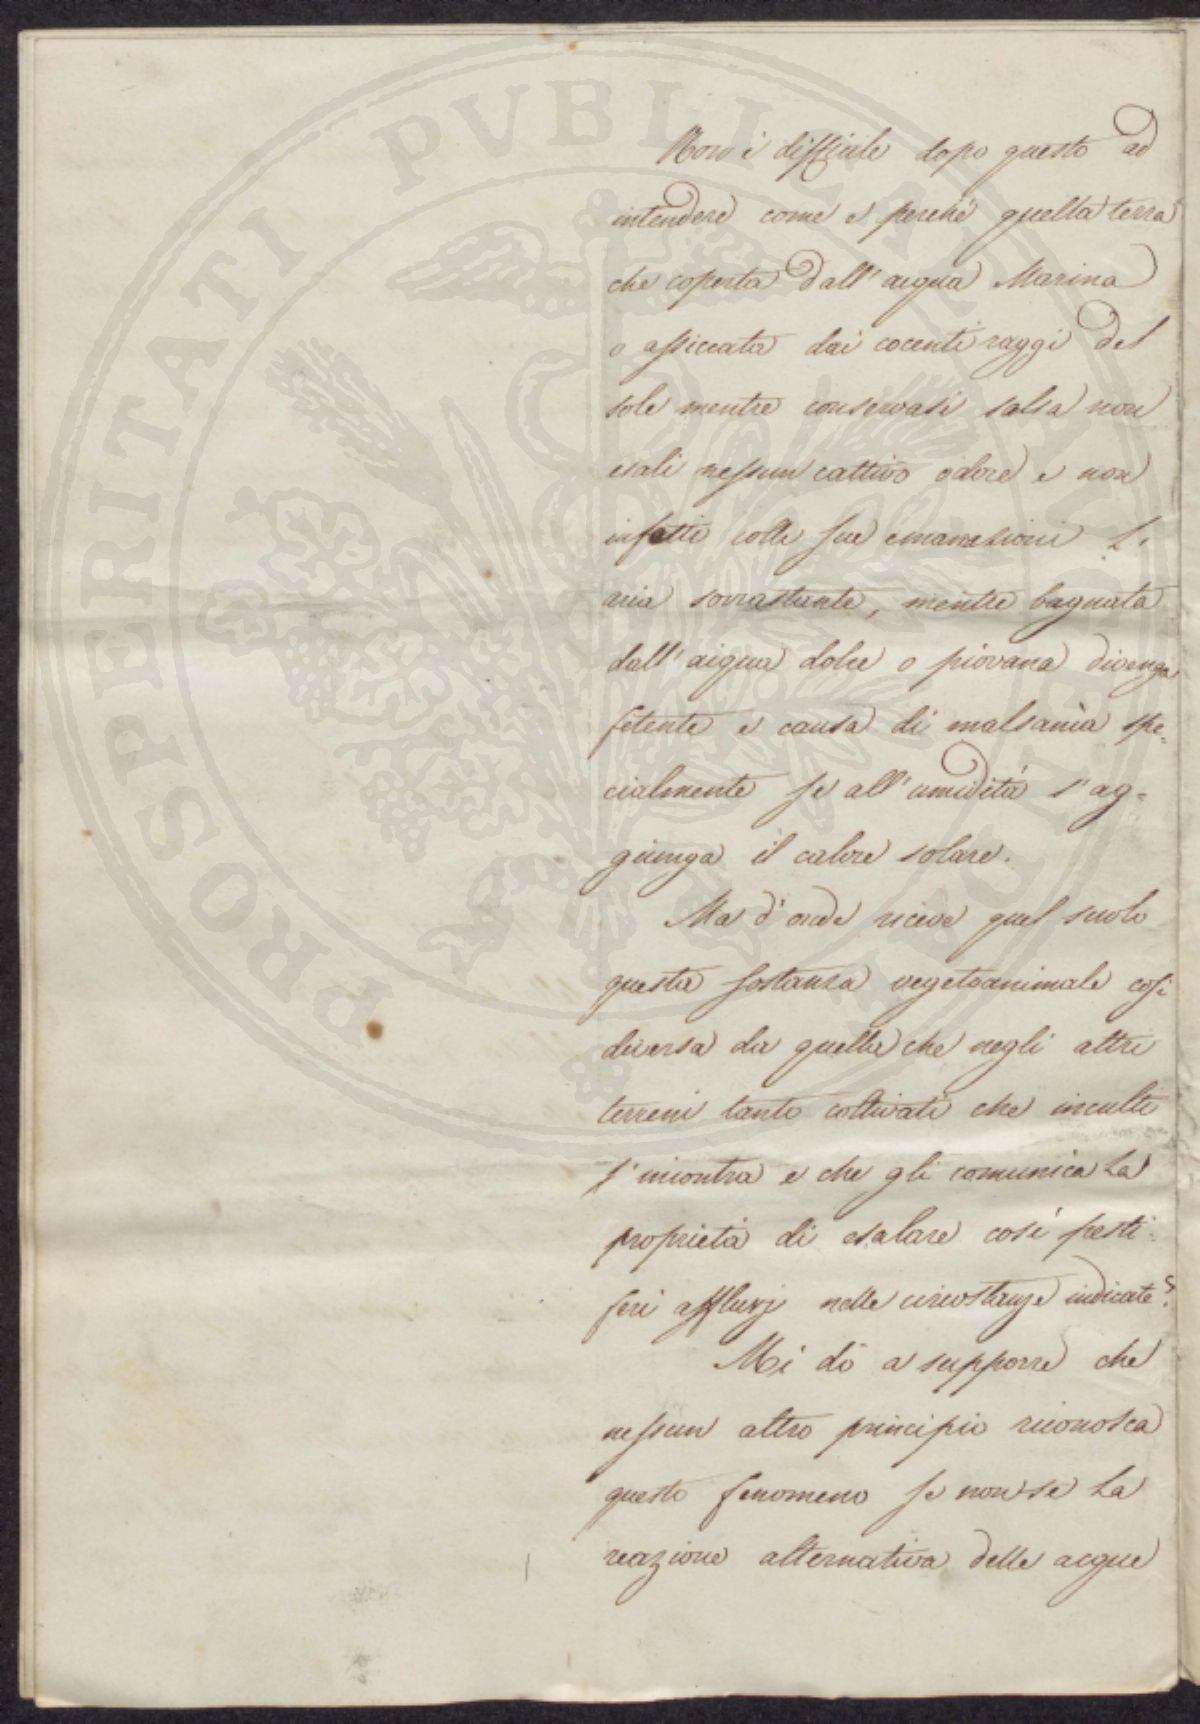 PROSPERITATI PVBLICAE AVGENDAE
Non è difficile dopo questo ad
intendere come e perché quella terra
che coperta dall'acqua Marina
o assiccata dai cocenti raggi del
sole mentre conservasi salsa non
esali nessun cattivo odore e non
infetti colle sue emanazioni l'
aria sovrastante, mentre bagnata
dall'acqua dolce o piovana divenga
fetente e causa di malsanìa spe=
cialmente se all'umidità s'ag=
giunga il calore solare.
Ma d'onde riceve quel suolo
questa sostanza vegetoanimale così
diversa da quella che negli altri
terreni tanto coltivati che inculti
s'incontra e che gli comunica la
proprietà di esalare così pesti=
feri efflluvj nelle circostanze indicate?
Mi dò a supporre che
nessun altro principio riconosca
questo fenomeno se non se la
reazione alternativa delle acque